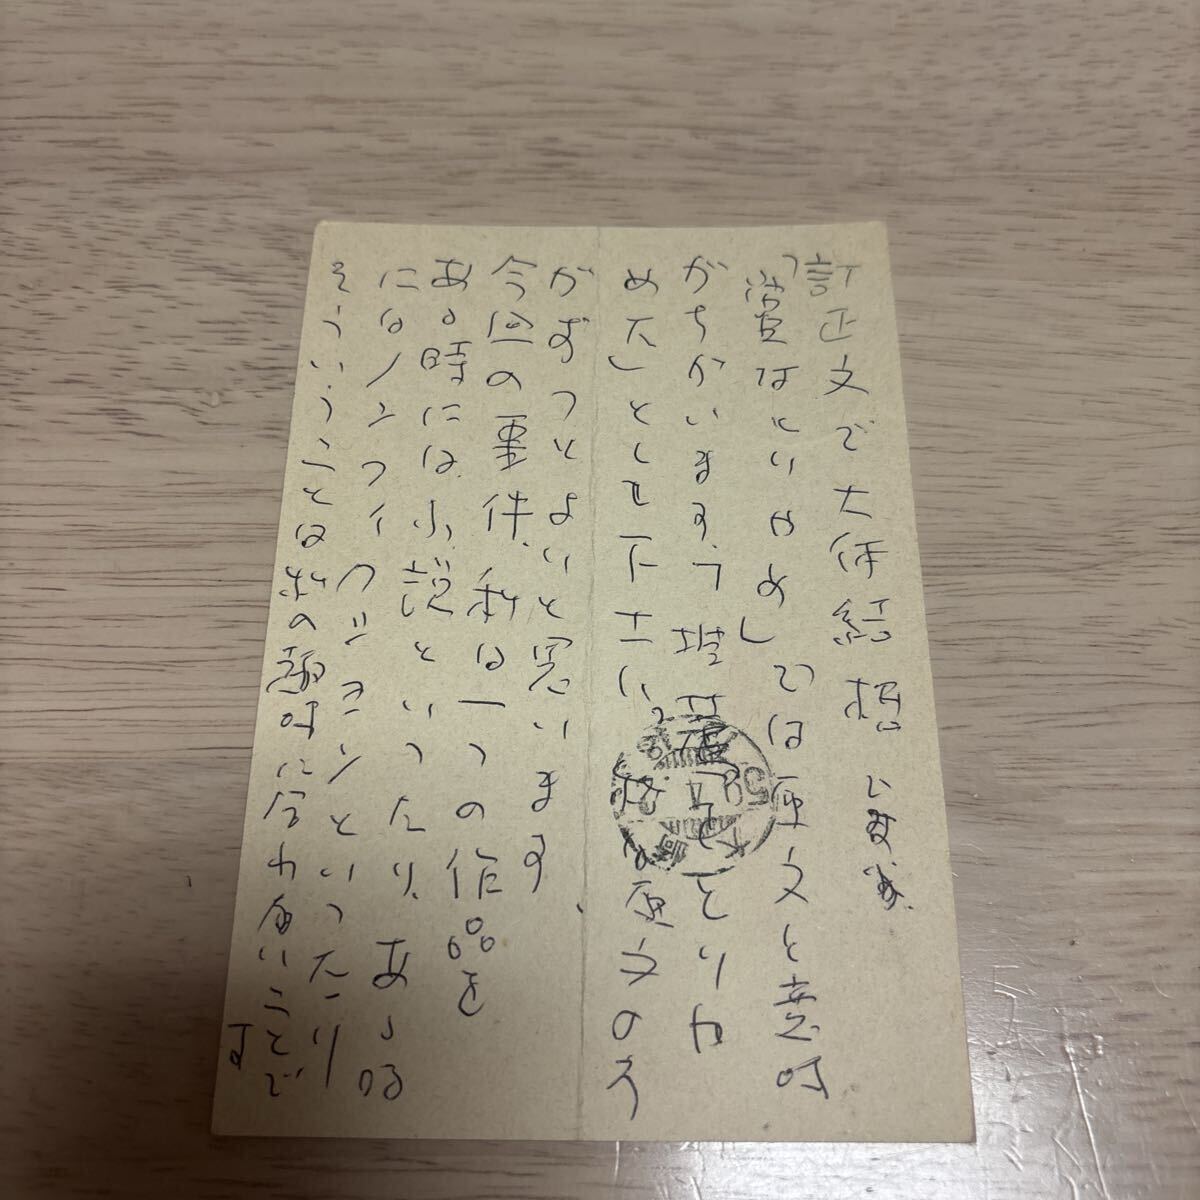 訂正文で大体結構います。
「賞はとりやめ」では原文と意味
がちがいます。「埋草 をとりや
めた」として下さい。 は原文のほう
がずっとよいと思います。
今回の事件、私は一つの作品を
ある時には小説といったり、ある時
にはノンフィクションといったり
そういうことは私の趣味に合わないことで
す